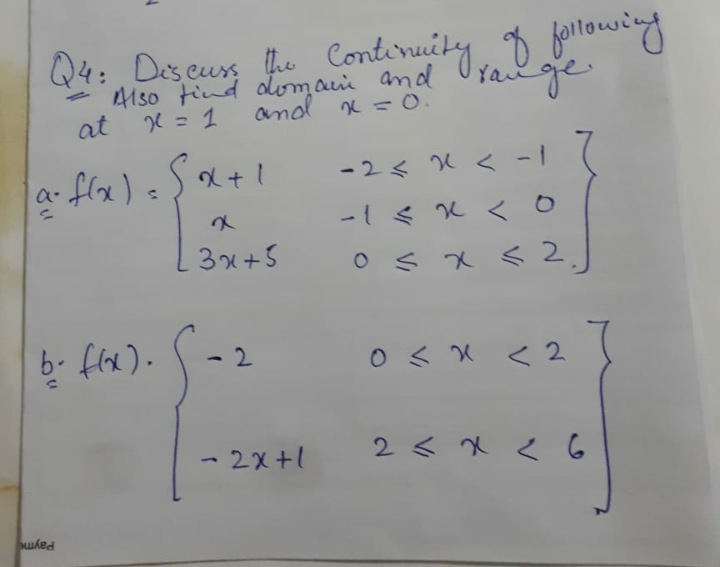 Q4: Discuss the Continuity of following
Also find domain and range.
at x = 1 and x = 0.
a. f(x) = { x + 1 -2 ≤ x < -1
x -1 ≤ x < 0
3x+5 0 ≤ x ≤ 2. }
b. f(x). { -2 0 ≤ x < 2
-2x+1 2 ≤ x < 6 }
Payme